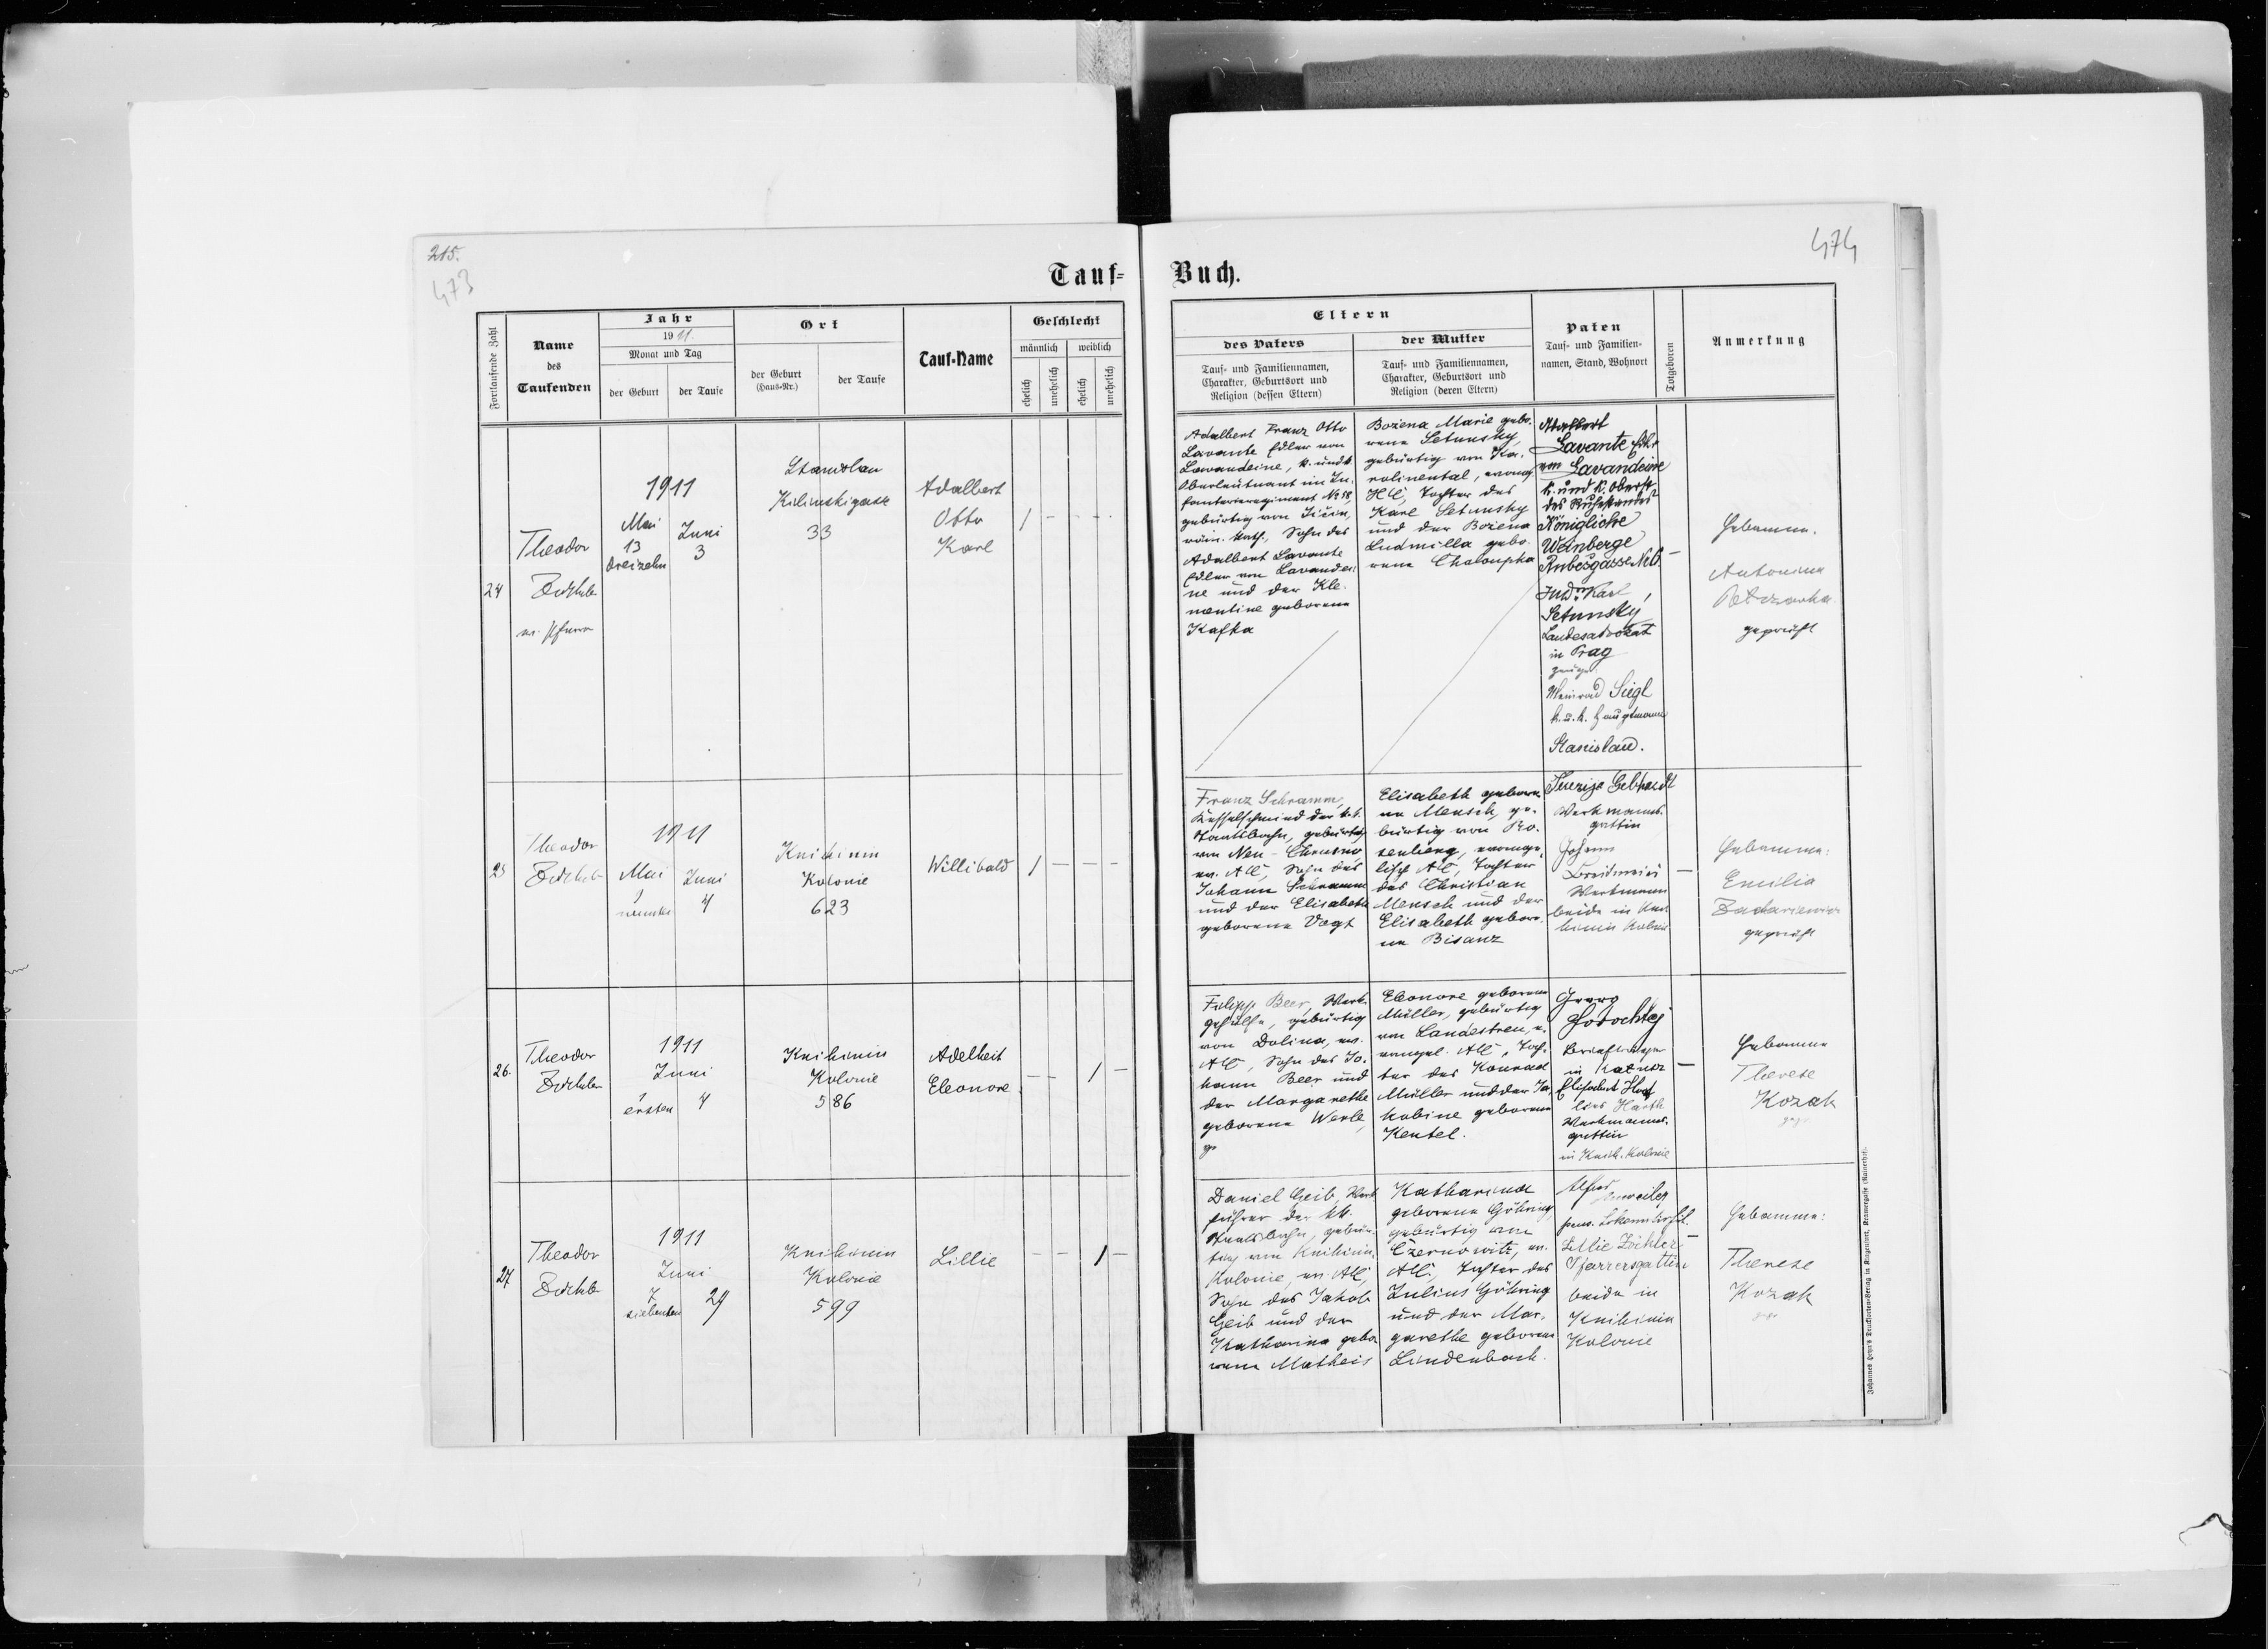 215.
473
474
Tauf-
Buch.
Fortlaufende Zahl
Name
des
Taufenden
Jahr
1911.
Monat und Tag
der Geburt
der Taufe
Ort
der Geburt
(Haus-Nr.)
der Taufe
Tauf-Name
Geschlecht
männlich
weiblich
ehelich
unehelich
ehelich
unehelich
Eltern
des Vaters
Tauf- und Familiennamen,
Charakter, Geburtsort und
Religion (dessen Eltern)
der Mutter
Tauf- und Familiennamen,
Charakter, Geburtsort und
Religion (deren Eltern)
Paten
Tauf- und Familien-
namen, Stand, Wohnort
Totgeboren
Anmerkung
24
Theodor
Zöckler
ev. Pfarrer
1911
Mai
13
dreizehn
Juni
3
Stanislau
Kilinskigasse
33
Adalbert
Otto
Karl
/ - - -
Adalbert Franz Otto
Lavante Edler von
Lavandeine, k. und k.
Oberleutnant im In-
fanterieregiment No 58
gebürtig von Jičin,
röm. kath., Sohn des
Adalbert Lavante
Edler von Lavandei-
ne und der Kle-
mentine geborene
Kafka
Božena Marie gebo-
rene Setunsky,
gebürtig von Ka-
rolinental, evang.
HC, Tochter des
Karl Setunsky
und der Božena
Ludmilla gebo-
rene Chaloupka
Adalbert
Lavante Edler
von Lavandeine
k. und k. Oberst
des Ruhestandes
Königliche
Weinberge
JUDr. Karl
Setunsky
Landesadvokat
in Prag
Zeuge
Meinrad Siegl
k. u. k. Hauptmann
Stanislau.
-
Hebamme.
Antonina
geprüft
25
Theodor
Zöckler
1911
Mai
9
neunten
Juni
4
Knihinin
Kolonie
623
Willibald
/ - - -
Franz Schramm,
Kesselschmied der k.k.
Staatsbahn, gebürtig
von Neu-Chrusno
ev. AC, Sohn des
Johann Schramm
und der Elisabeth
geborene Vogt
Elisabeth gebore-
ne Mensch, ge-
bürtig von Ro-
senberg, evange-
lisch AC, Tochter
des Christian
Mensch und der
Elisabeth gebore-
ne Bisanz
Therezja Gebhardt
Werkmanns-
gattin
Johann
Werkmann
beide in Kni-
hinin Kolonie
-
Hebamme:
Emilia
Zachariewicz
geprüft
26.
Theodor
Zöckler
1911
Juni
1
ersten
4
Knihinin
Kolonie
586
Adelheit
Eleonore
- - / -
Filipp Beer, Werk-
gehülfe, gebürtig
von Dolina, ev.
AC, Sohn des Jo-
hann Beer und
der Margarethe
geborene Werle,
Eleonore geborene
Müller, gebürtig
von Landestreu, e-
vangel. AC, Toch-
ter des Konrad
Müller und der Ja-
kobine geborene
Kentel.
Georg
Briefträger
in Kalusz
Werkmanns-
gattin
in Knih. Kolonie
-
Hebamme
Therese
Kozak
gepr.
27
Theodor
Zöckler
1911
Juni
7
siebenten
29
Knihinin
Kolonie
599
Lillie
- - / -
Daniel Geib, Werk-
führer der kk.
Staatsbahn, gebür-
tig von Knihinin
Kolonie, ev. AC,
Sohn des Jakob
Geib und der
Katharina gebo-
rene Matheis
Katharina
geborene Göhring,
gebürtig von
Czernowitz, ev.
AC, Tochter des
Julius Göhring
und der Mar-
garethe geborene
Lindenbach.
Alfred
Lillie Zöckler
Pfarrersgattin
beide in
Knihinin
Kolonie
-
Hebamme:
Therese
Kozak
gepr.
Johannes Heyn's Drucksorten-Verlag in Klagenfurt, Kramergasse (Rainerhof).